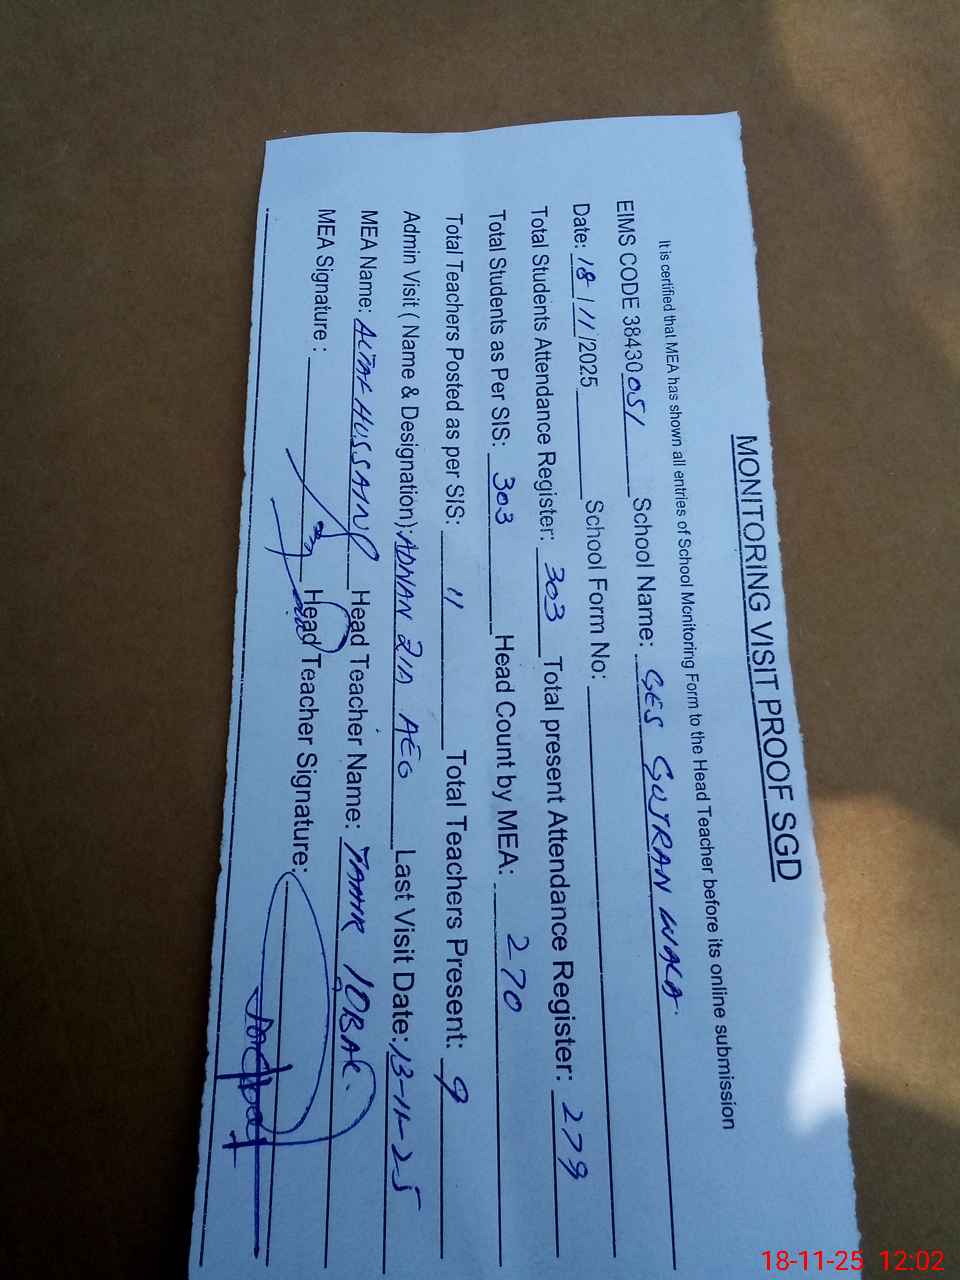 MONITORING VISIT PROOF SGD
It is certified that MEA has shown all entries of School Monitoring Form to the Head Teacher before its online submission
EIMS CODE 38430051 School Name: GES GUJRAN WALA.
Date: 18/11/2025 School Form No:
Total Students Attendance Register: 303 Total present Attendance Register: 279
Total Students as Per SIS: 303 Head Count by MEA: 270
Total Teachers Posted as per SIS: 11 Total Teachers Present: 9
Admin Visit ( Name & Designation): ADNAN ZIA AEO Last Visit Date: 13-11-25
MEA Name: ALTAF HUSSAIN Head Teacher Name: TAHIR IQBAL.
MEA Signature : Head Teacher Signature:
18-11-25 12:02